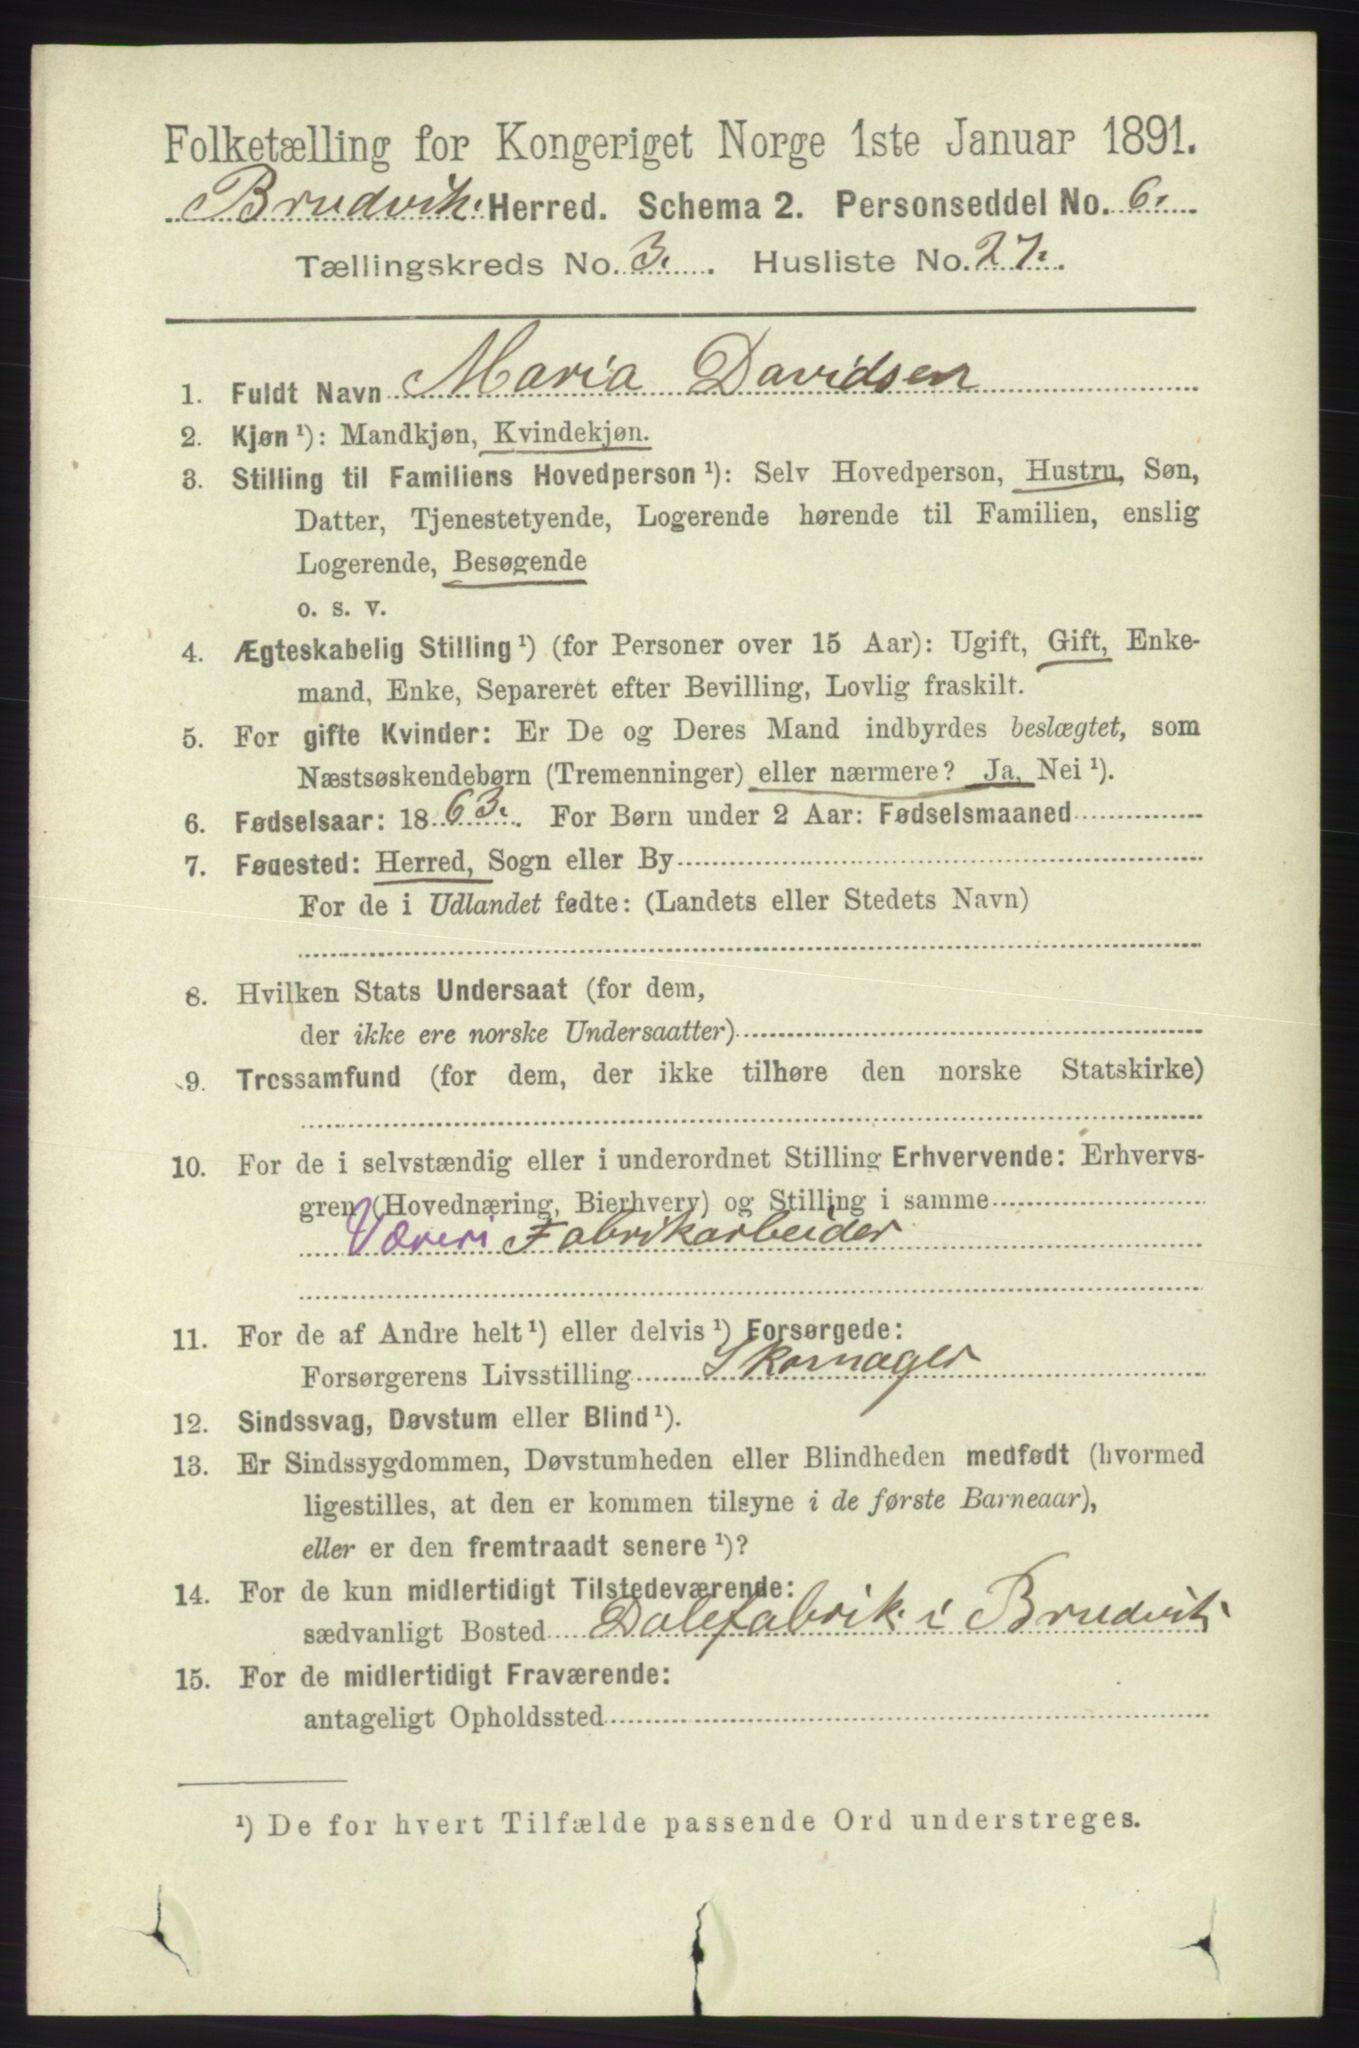 Folketælling for Kongeriget Norge 1ste Januar 1891.
Brudvik Herred. Schema 2. Personseddel No. 6.
Tællingskreds No. 3. Husliste No. 27.
1. Fuldt Navn Maria Davidsen
2. Kjøn ¹): Mandkjøn, Kvindekjøn.
3. Stilling til Familiens Hovedperson ¹): Selv Hovedperson, Hustru, Søn,
Datter, Tjenestetyende, Logerende hørende til Familien, enslig
Logerende, Besøgende
o. s. v.
4. Ægteskabelig Stilling ¹) (for Personer over 15 Aar): Ugift, Gift, Enke-
mand, Enke, Separeret efter Bevilling, Lovlig fraskilt.
5. For gifte Kvinder: Er De og Deres Mand indbyrdes beslægtet, som
Næstsøskendebørn (Tremenninger) eller nærmere? Ja, Nei ¹).
6. Fødselsaar: 1863. For Børn under 2 Aar: Fødselsmaaned
7. Føаested: Herred, Sogn eller By
For de i Udlandet fødte: (Landets eller Stedets Navn)
8. Hvilken Stats Undersaat (for dem,
der ikke ere norske Undersaatter)
9. Trossamfund (for dem, der ikke tilhøre den norske Statskirke)
10. For de i selvstændig eller i underordnet Stilling Erhvervende: Erhvervs-
gren (Hovednæring, Bierhverv) og Stilling i samme
Væveri Fabrikarbeider
11. For de af Andre helt ¹) eller delvis ¹) Forsørgede:
Forsørgerens Livsstilling Skomager
12. Sindssvag, Døvstum eller Blind ¹).
13. Er Sindssygdommen, Døvstumheden eller Blindheden medfødt (hvormed
ligestilles, at den er kommen tilsyne i de første Barneaar),
eller er den fremtraadt senere ¹)?
14. For de kun midlertidigt Tilstedeværende:
sædvanligt Bosted Dalefabrik i Brudvik
15. For de midlertidigt Fraværende:
antageligt Opholdssted
¹) De for hvert Tilfælde passende Ord understreges.